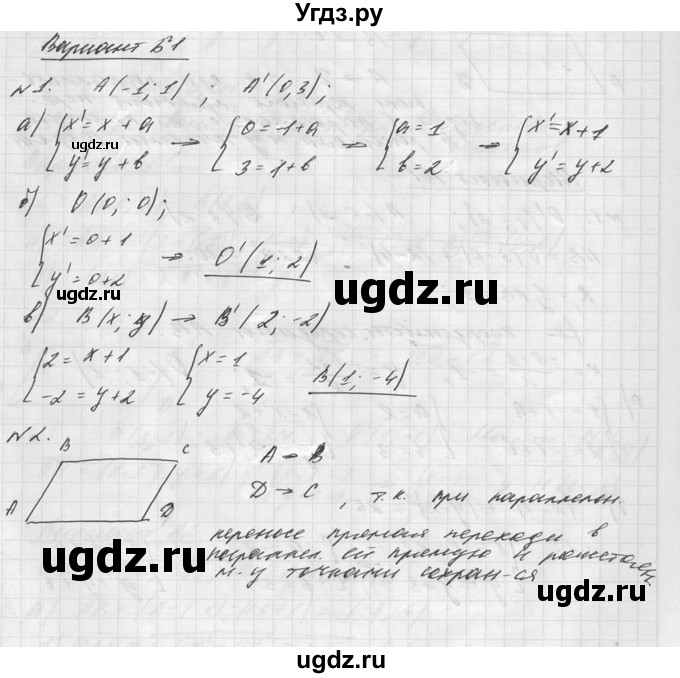 Угdз.ру
Вариант Б1
№1. A(-1; 1) ; A'(0,3);
а) { x' = x + a → { 0 = -1+a → { a = 1 → { x' = x+1
y' = y + b 3 = 1+b b = 2 y' = y+2
б) O(0; 0);
{ x' = 0+1 → O'(1; 2)
y' = 0+2
ugdz.ru
ugdz.ru
ugdz.ru
в) B(x; y) → B'(2; -2)
{ 2 = x+1 { x = 1 B(1; -4)
-2 = y+2 y = -4
№2.
B C A → B
A D D → C , т.к. при параллельн.
переносе прямая переходи в
параллел. ей прямую и расстоя
м-у точками сохран-ся
ugdz.ru
ugdz.ru
ugdz.ru